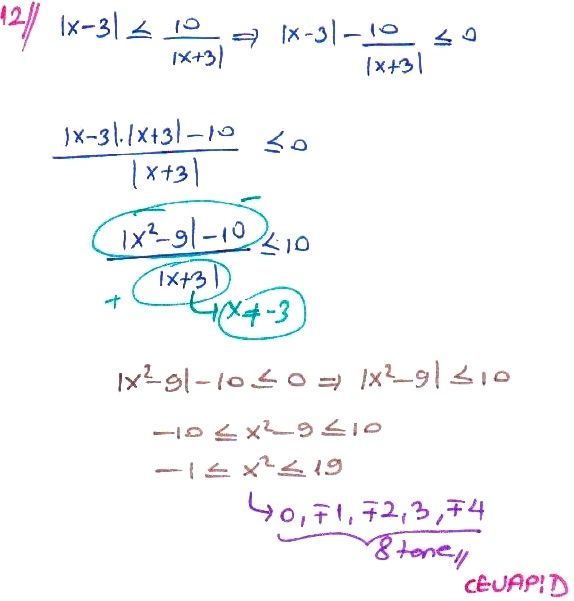 12// |x-3| ≤ 10/|x+3| ⇒ |x-3| - 10/|x+3| ≤ 0
|x-3|.|x+3|-10 / |x+3| ≤ 0
|x²-9|-10 / |x+3| ≤ 10
- + x≠-3
|x²-9|-10 ≤ 0 ⇒ |x²-9| ≤ 10
-10 ≤ x²-9 ≤ 10
-1 ≤ x² ≤ 19
↳ 0, ∓1, ∓2, 3, ∓4
8 tane//
CEVAP: D